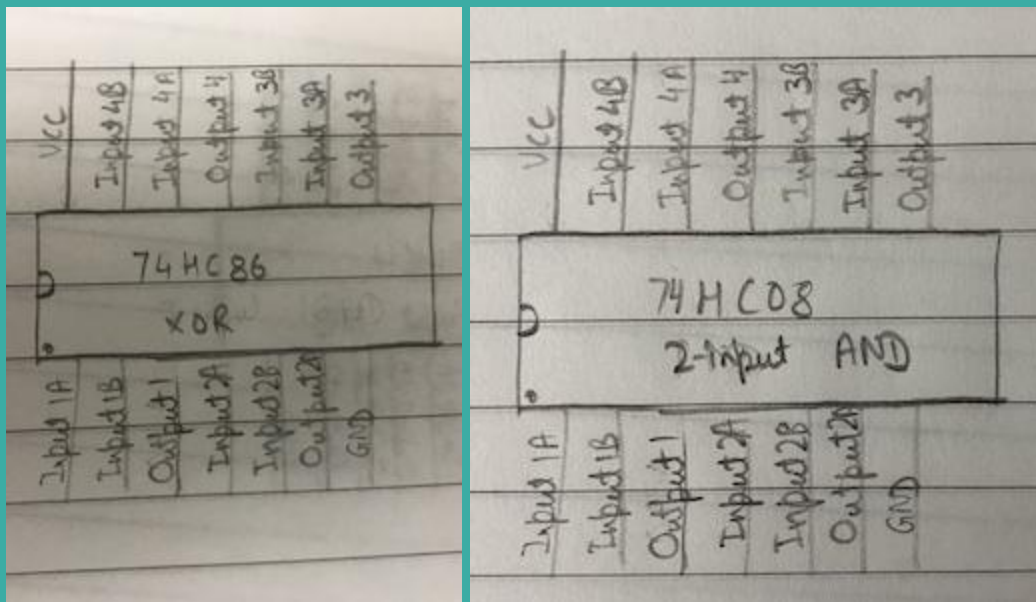 VCC
Input 4B
Input 4A
Output 4
Input 3B
Input 3A
Output 3
74HC86
XOR
Input 1A
Input 1B
Output 1
Input 2A
Input 2B
Output 2
GND
VCC
Input 4B
Input 4A
Output 4
Input 3B
Input 3A
Output 3
74HC08
2-input AND
Input 1A
Input 1B
Output 1
Input 2A
Input 2B
Output 2
GND